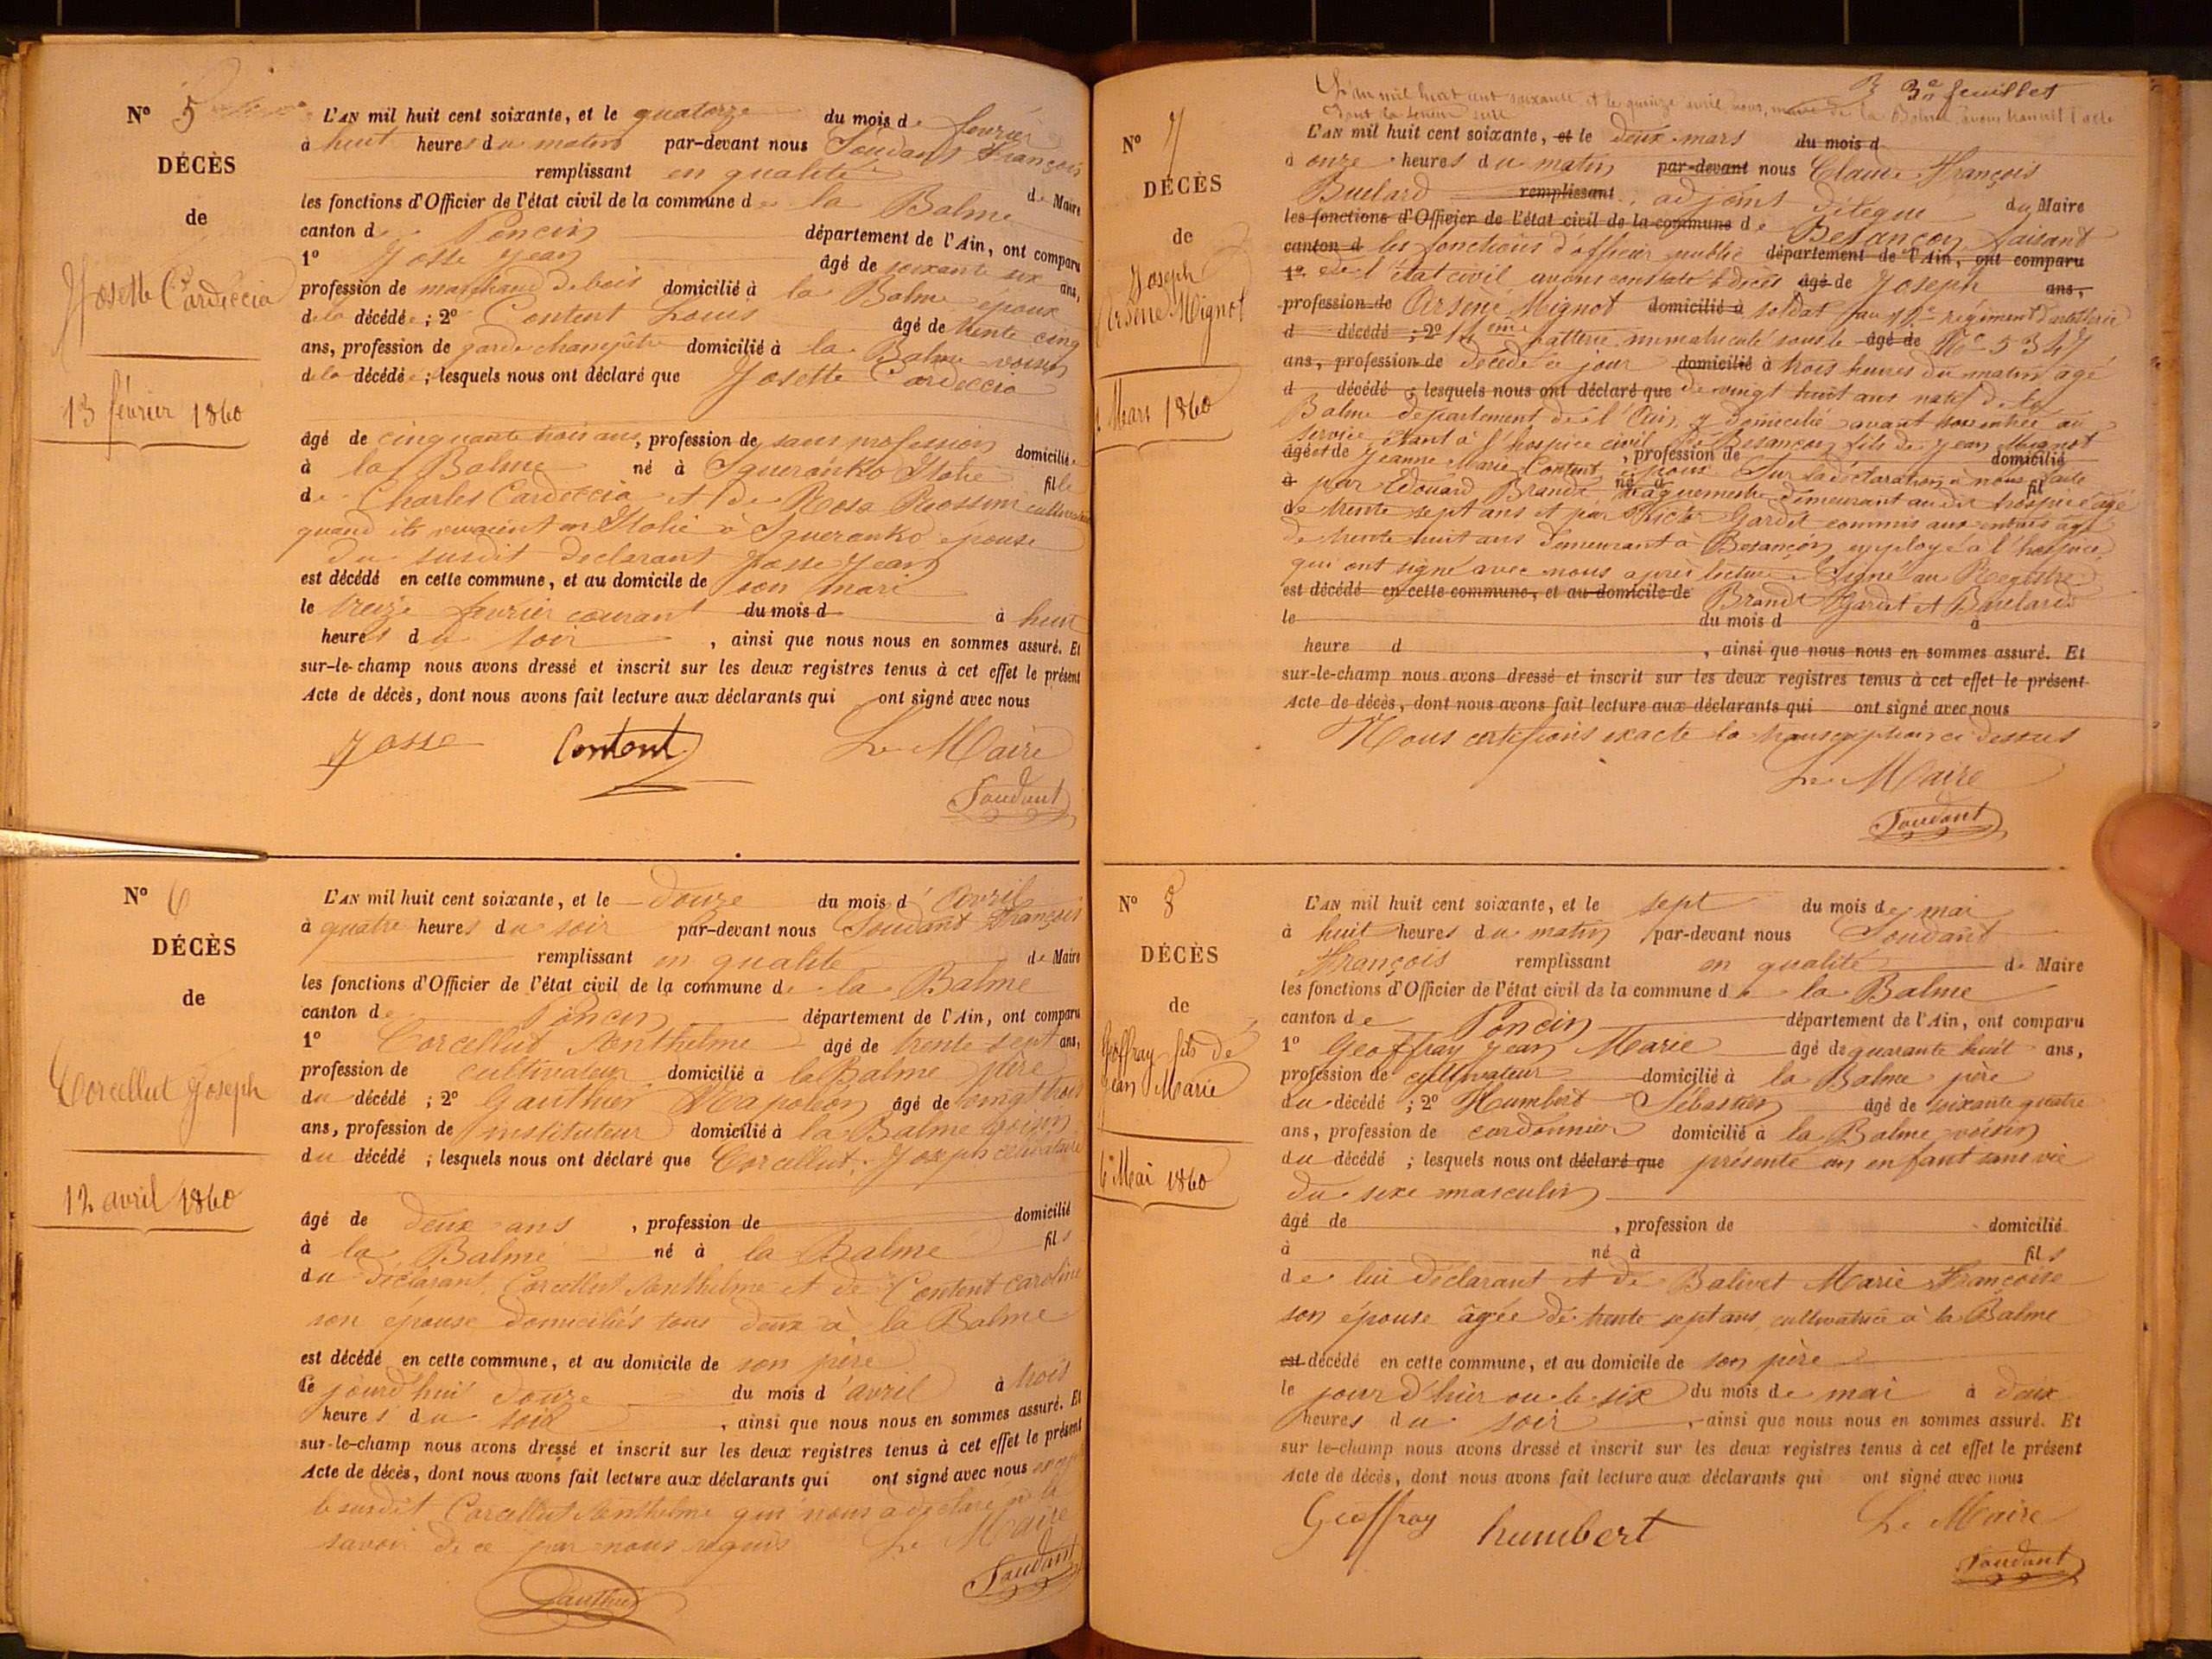 N° 5
DÉCÈS
de
Josette Cardeccia
13 février 1860
L'AN mil huit cent soixante, et le quatorze du mois de février
à huit heures du matin par-devant nous Soudant François
remplissant en qualité de Maire
les fonctions d'Officier de l'état civil de la commune de la Balme
canton de Poncin département de l'Ain, ont comparu
1° Josse Jean âgé de soixante six ans,
profession de marchand de bois domicilié à la Balme époux
de la décédée ; 2° Content Louis âgé de trente cinq
ans, profession de garde champêtre domicilié à la Balme voisin
de la décédée ; lesquels nous ont déclaré que Josette Cardeccia
âgé de cinquante trois ans, profession de sans profession domiciliée
à la Balme né à Squeranko Italie fille
de Charles Cardeccia et de Rosa Rossini cultivateurs
quand ils vivaient en Italie à Squeranko épouse
du susdit déclarant Josse Jean
est décédé en cette commune, et au domicile de son mari
le treize février courant du mois d à huit
heures du soir , ainsi que nous nous en sommes assuré. Et
sur-le-champ nous avons dressé et inscrit sur les deux registres tenus à cet effet le présent
Acte de décès, dont nous avons fait lecture aux déclarants qui ont signé avec nous
Josse Content Le Maire
Soudant
N° 6
DÉCÈS
de
Corcellut Joseph
12 avril 1860
L'AN mil huit cent soixante, et le douze du mois d'avril
à quatre heures du soir par-devant nous Soudant François
remplissant en qualité de Maire
les fonctions d'Officier de l'état civil de la commune de la Balme
canton de Poncin département de l'Ain, ont comparu
1° Corcellut Anthelme âgé de trente sept ans,
profession de cultivateur domicilié à la Balme père
du décédé ; 2° Gauthier Napoléon âgé de vingt trois
ans, profession de instituteur domicilié à la Balme voisin
du décédé ; lesquels nous ont déclaré que Corcellut Joseph célibataire
âgé de deux ans , profession de domicilié
à la Balme né à la Balme fils
du déclarant Corcellut Anthelme et de Content Caroline
son épouse domiciliés tous deux à la Balme
est décédé en cette commune, et au domicile de son père
le jourd'hui douze du mois d'avril à trois
heures du soir , ainsi que nous nous en sommes assuré. Et
sur-le-champ nous avons dressé et inscrit sur les deux registres tenus à cet effet le présent
Acte de décès, dont nous avons fait lecture aux déclarants qui ont signé avec nous
le susdit Corcellut Anthelme qui nous a déclaré ne le
savoir de ce par nous requis Le Maire
Gauthier Soudant
3e feuillet
L'an mil huit cent soixante et le quinze avril nous, maire de la Balme avons transcrit l'acte
dont la teneur suit
N° 7
DÉCÈS
de
Joseph
Arsène Mignot
2 Mars 1860
L'AN mil huit cent soixante, et le deux mars du mois d
à onze heures du matin par-devant nous Claude François
Buelard remplissant adjoint délégué du Maire
les fonctions d'Officier de l'état civil de la commune de Besançon faisant
canton d les fonctions d'officier public département de l'Ain, ont comparu
1° de l'état civil avons constaté le décès âgé de Joseph ans,
profession de Arsène Mignot domicilié à soldat au 11e régiment d'artillerie
d décédé ; 2° 11ème batterie immatriculé sous le âgé de N° 5347
ans, profession de décédé ce jour domicilié à trois heures du matin âgé
d décédé ; lesquels nous ont déclaré que de vingt huit ans natif de la
Balme département de l'Ain y domicilié avant son entrée au
service, étant à l'hospice civil de Besançon fils de Jean Mignot
âgé et de Jeanne Marie Content , profession de époux Sur la déclaration à nous faite domicilié
à par Edouard Brandt né à vaguemestre demeurant au dit hospice âgé fil
de trente sept ans et par Gardet commis aux entrées âgé
de trente huit ans demeurant à Besançon employé à l'hospice
qui ont signé avec nous après lecture. Signé au Registre
est décédé en cette commune, et au domicile de Brandt Gardet et Buelard
le du mois d à
heure d , ainsi que nous nous en sommes assuré. Et
sur-le-champ nous avons dressé et inscrit sur les deux registres tenus à cet effet le présent
Acte de décès, dont nous avons fait lecture aux déclarants qui ont signé avec nous
Nous certifions exacte la transcription ci dessus
Le Maire
Soudant
N° 8
DÉCÈS
de
Geoffray fils de
Jean Marie
6 Mai 1860
L'AN mil huit cent soixante, et le sept du mois de mai
à huit heures du matin par-devant nous Soudant
François remplissant en qualité de Maire
les fonctions d'Officier de l'état civil de la commune de la Balme
canton de Poncin département de l'Ain, ont comparu
1° Geoffray Jean Marie âgé de quarante huit ans,
profession de cultivateur domicilié à la Balme père
du décédé ; 2° Humbert Sébastien âgé de soixante quatre
ans, profession de cordonnier domicilié à la Balme voisin
du décédé ; lesquels nous ont déclaré que présenté un enfant sans vie
du sexe masculin
âgé de , profession de domicilié
à né à fils
de lui déclarant et de Balivet Marie Françoise
son épouse âgée de trente sept ans, cultivatrice à la Balme
est décédé en cette commune, et au domicile de son père
le jour d'hier ou le six du mois de mai à deux
heures du soir , ainsi que nous nous en sommes assuré. Et
sur le-champ nous avons dressé et inscrit sur les deux registres tenus à cet effet le présent
Acte de décès, dont nous avons fait lecture aux déclarants qui ont signé avec nous
Geoffray humbert Le Maire
Soudant